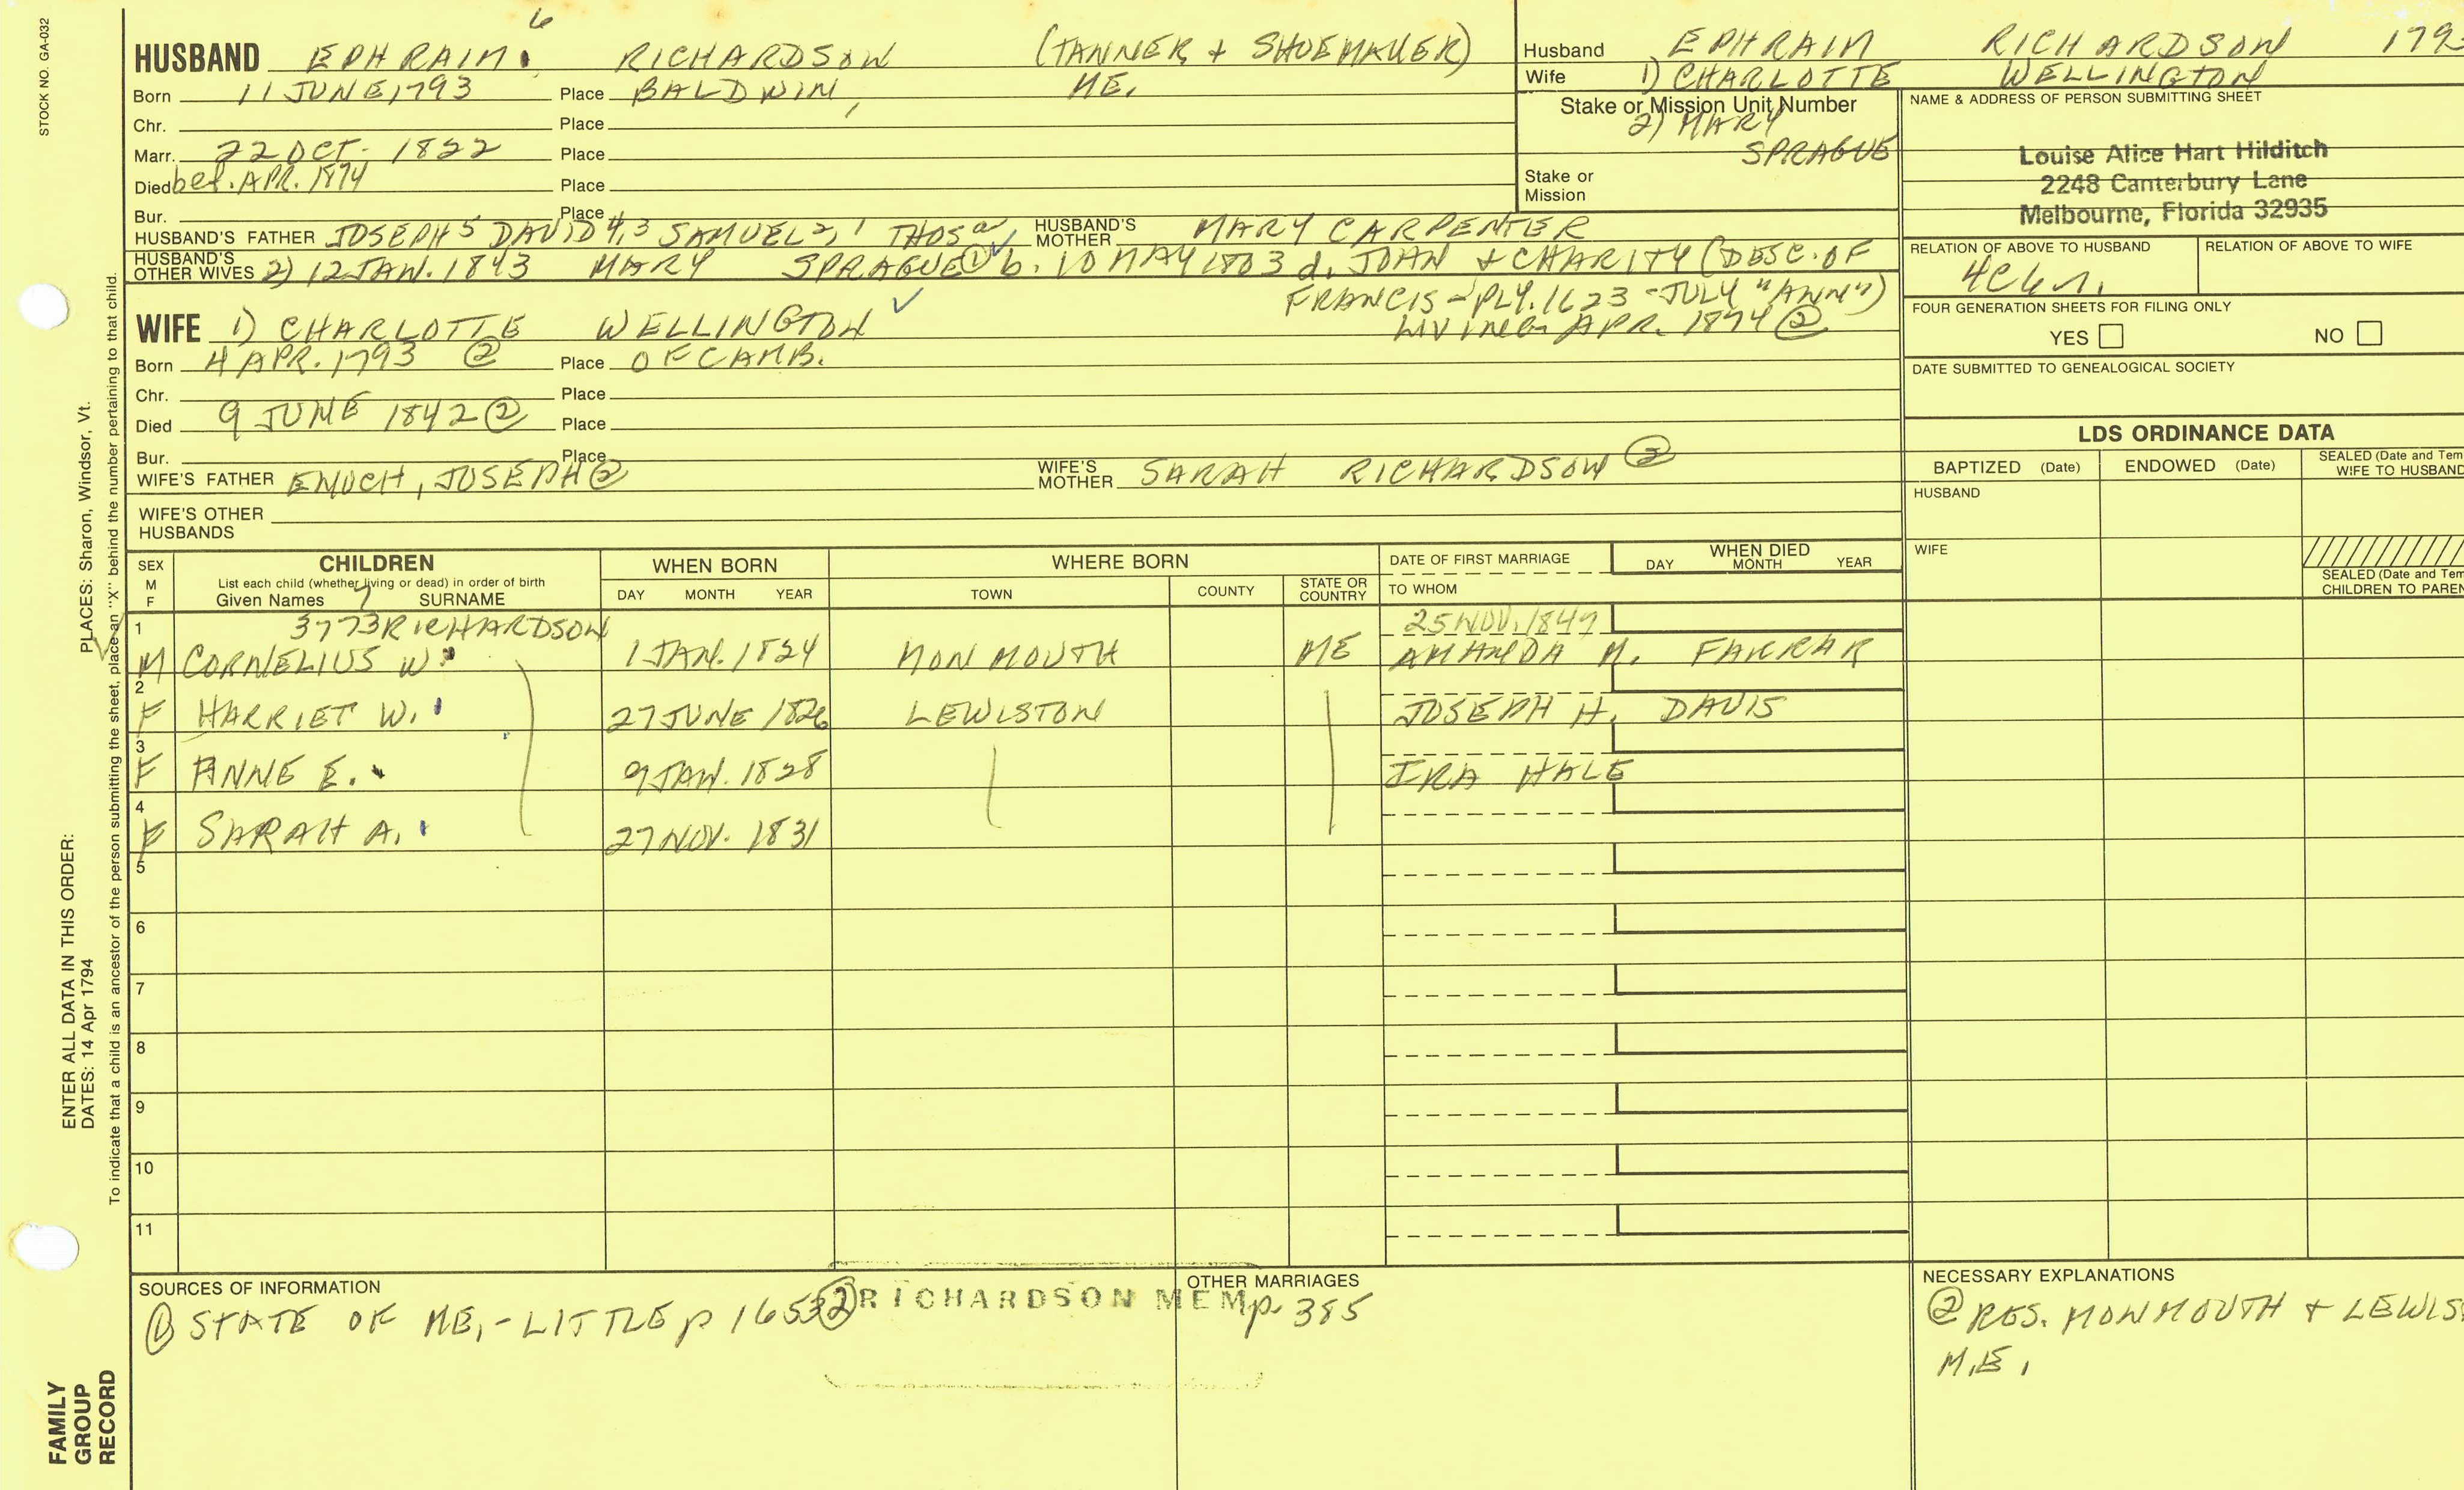 STOCK NO. GA-032
6
HUSBAND EPHRAIM RICHARDSON (TANNER + SHOEMAKER)
Born 11 JUNE 1793 Place BALDWIN, ME.
Chr. Place
Marr. 22 OCT. 1822 Place
Died bef. APR. 1874 Place
Bur. Place
HUSBAND'S FATHER JOSEPH 5 DAVID 4,3 SAMUEL 2, 1 THOS HUSBAND'S MOTHER MARY CARPENTER
HUSBAND'S OTHER WIVES 2) 12 JAN. 1843 MARY SPRAGUE ① b. 10 MAY 1803 d. JOHN + CHARITY (DESC. OF
FRANCIS - PLY. 1623 - JULY "ANN")
LIVING APR. 1874 ②
WIFE 1) CHARLOTTE WELLINGTON
Born 4 APR. 1793 ② Place OF CAMB.
Chr. Place
Died 9 JUNE 1842 ② Place
Bur. Place
WIFE'S FATHER ENOCH, JOSEPH ② WIFE'S MOTHER SARAH RICHARDSON ②
WIFE'S OTHER HUSBANDS
Husband EPHRAIM RICHARDSON 179
Wife 1) CHARLOTTE WELLINGTON
Stake or Mission Unit Number
2) MARY
SPRAGUE
Stake or
Mission
NAME & ADDRESS OF PERSON SUBMITTING SHEET
Louise Alice Hart Hilditch
2248 Canterbury Lane
Melbourne, Florida 32935
RELATION OF ABOVE TO HUSBAND RELATION OF ABOVE TO WIFE
FOUR GENERATION SHEETS FOR FILING ONLY
YES NO
DATE SUBMITTED TO GENEALOGICAL SOCIETY
LDS ORDINANCE DATA
BAPTIZED (Date) ENDOWED (Date) SEALED (Date and Tem
WIFE TO HUSBAND
HUSBAND
WIFE
SEALED (Date and Tem
CHILDREN TO PAREN
SEX M F CHILDREN WHEN BORN WHERE BORN DATE OF FIRST MARRIAGE WHEN DIED
List each child (whether living or dead) in order of birth
Given Names 7 SURNAME DAY MONTH YEAR TOWN COUNTY STATE OR COUNTRY TO WHOM DAY MONTH YEAR
1 3773 RICHARDSON 25 NOV. 1849
M CORNELIUS W. 1 JAN. 1824 MONMOUTH ME AMANDA M. FARRAR
2
F HARRIET W. 27 JUNE 1826 LEWISTON JOSEPH H. DAVIS
3
F ANNE E. 9 JAN. 1828 IRA HALE
4
F SARAH A. 27 NOV. 1831
5
6
7
8
9
10
11
SOURCES OF INFORMATION
① STATE OF ME. - LITTLE p 1653 ② RICHARDSON MEM p. 385
OTHER MARRIAGES
NECESSARY EXPLANATIONS
② RES. MONMOUTH + LEWIS
M.E.
PLACES: Sharon, Windsor, Vt.
ENTER ALL DATA IN THIS ORDER:
DATES: 14 Apr 1794
To indicate that a child is an ancestor of the person submitting the sheet, place an "X" behind the number pertaining to that child.
FAMILY
GROUP
RECORD